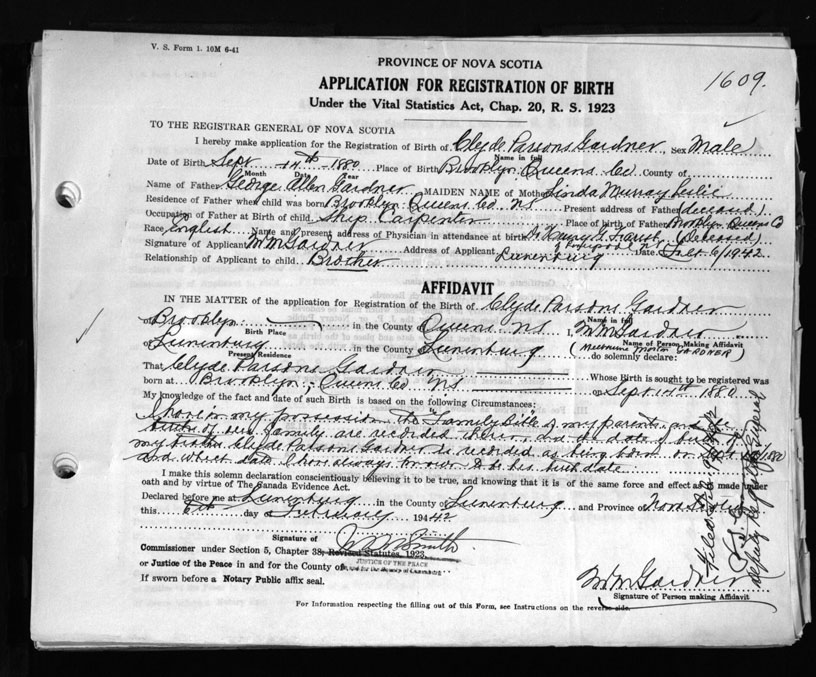 V. S. Form 1. 10M 6-41
PROVINCE OF NOVA SCOTIA
APPLICATION FOR REGISTRATION OF BIRTH
1609.
Under the Vital Statistics Act, Chap. 20, R. S. 1923
TO THE REGISTRAR GENERAL OF NOVA SCOTIA
I hereby make application for the Registration of Birth of Clyde Parsons Gardner, Sex Male
Name in full
Date of Birth Sept 14th 1880 Place of Birth Brooklyn Queens Co County of
Month Date Year
Name of Father George Allen Gardner MAIDEN NAME of Mother Linda Murray Leslie
Residence of Father when child was born Brooklyn Queens Co. NS Present address of Father (deceased)
Occupation of Father at Birth of child Ship Carpenter Place of birth of Father Brooklyn Queens Co
Race English Name and present address of Physician in attendance at birth Dr Henry (Deceased)
Signature of Applicant M M Gardner Address of Applicant Lunenburg Date Feb 6/1942
Relationship of Applicant to child Brother
AFFIDAVIT
IN THE MATTER of the application for Registration of the Birth of Clyde Parsons Gardner
Name in full
of Brooklyn in the County of Queens NS I, M M Gardner
Birth Place Name of Person Making Affidavit
of Lunenburg in the County of Lunenburg (GARDNER) do solemnly declare:
Present Residence
That Clyde Parsons Gardner Whose Birth is sought to be registered was
born at Brooklyn, Queens Co NS on Sept 14th 1880
My knowledge of the fact and date of such Birth is based on the following Circumstances:
I have in my possession the "Family Bible" of my parents and
births of our family are recorded therein, and the date of birth of
my brother Clyde Parsons Gardner is recorded as being born on Sept 14/1880
and which date I have always known to be his birth date.
I make this solemn declaration conscientiously believing it to be true, and knowing that it is of the same force and effect as if made under
oath and by virtue of The Canada Evidence Act.
Declared before me at Lunenburg in the County of Lunenburg and Province of Nova Scotia
this 6th day of February 1942
Signature of
Commissioner under Section 5, Chapter 38, Revised Statutes, 1923
or Justice of the Peace in and for the County of
JUSTICE OF THE PEACE
If sworn before a Notary Public affix seal.
M M Gardner
Signature of Person making Affidavit
For Information respecting the filling out of this Form, see Instructions on the reverse side.